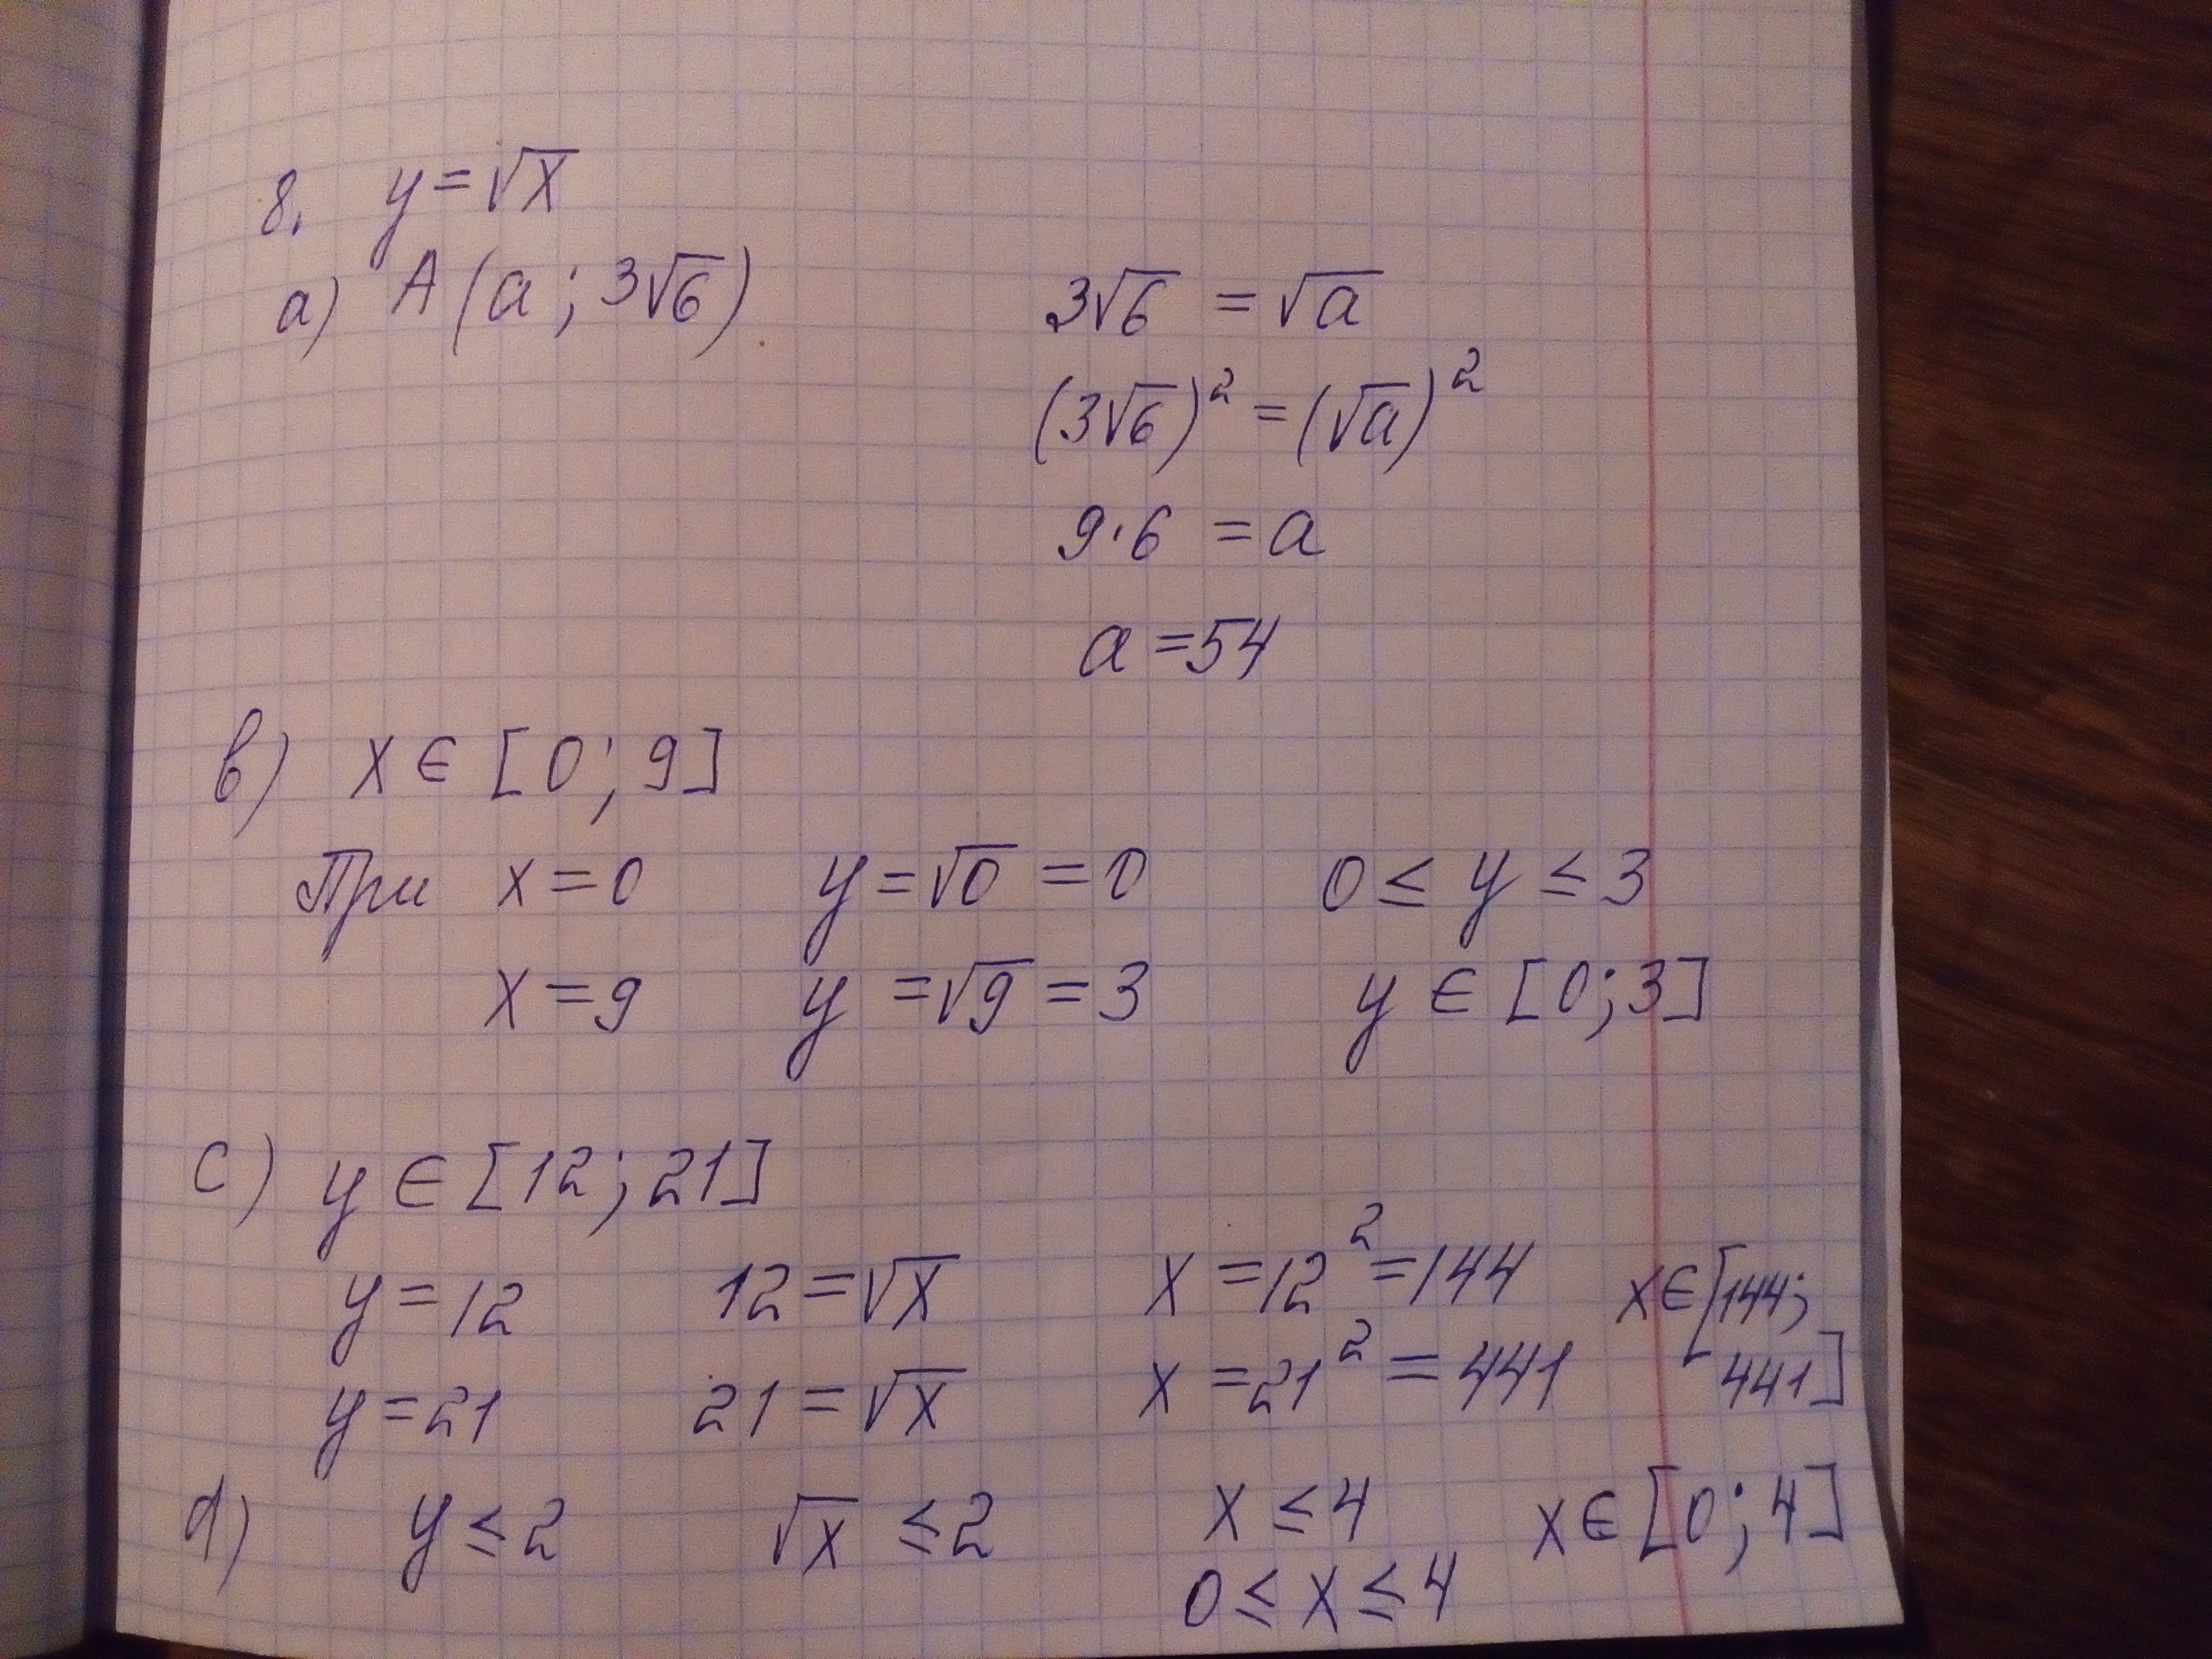 8. y = √x
a) A (a ; 3√6) 3√6 = √a
(3√6)² = (√a)²
9·6 = a
a = 54
b) x ∈ [0 ; 9]
При x = 0 y = √0 = 0 0 ≤ y ≤ 3
x = 9 y = √9 = 3 y ∈ [0 ; 3]
c) y ∈ [12 ; 21]
y = 12 12 = √x x = 12² = 144 x ∈ [144;
y = 21 21 = √x x = 21² = 441 441]
d) y ≤ 2 √x ≤ 2 x ≤ 4 x ∈ [0 ; 4]
0 ≤ x ≤ 4